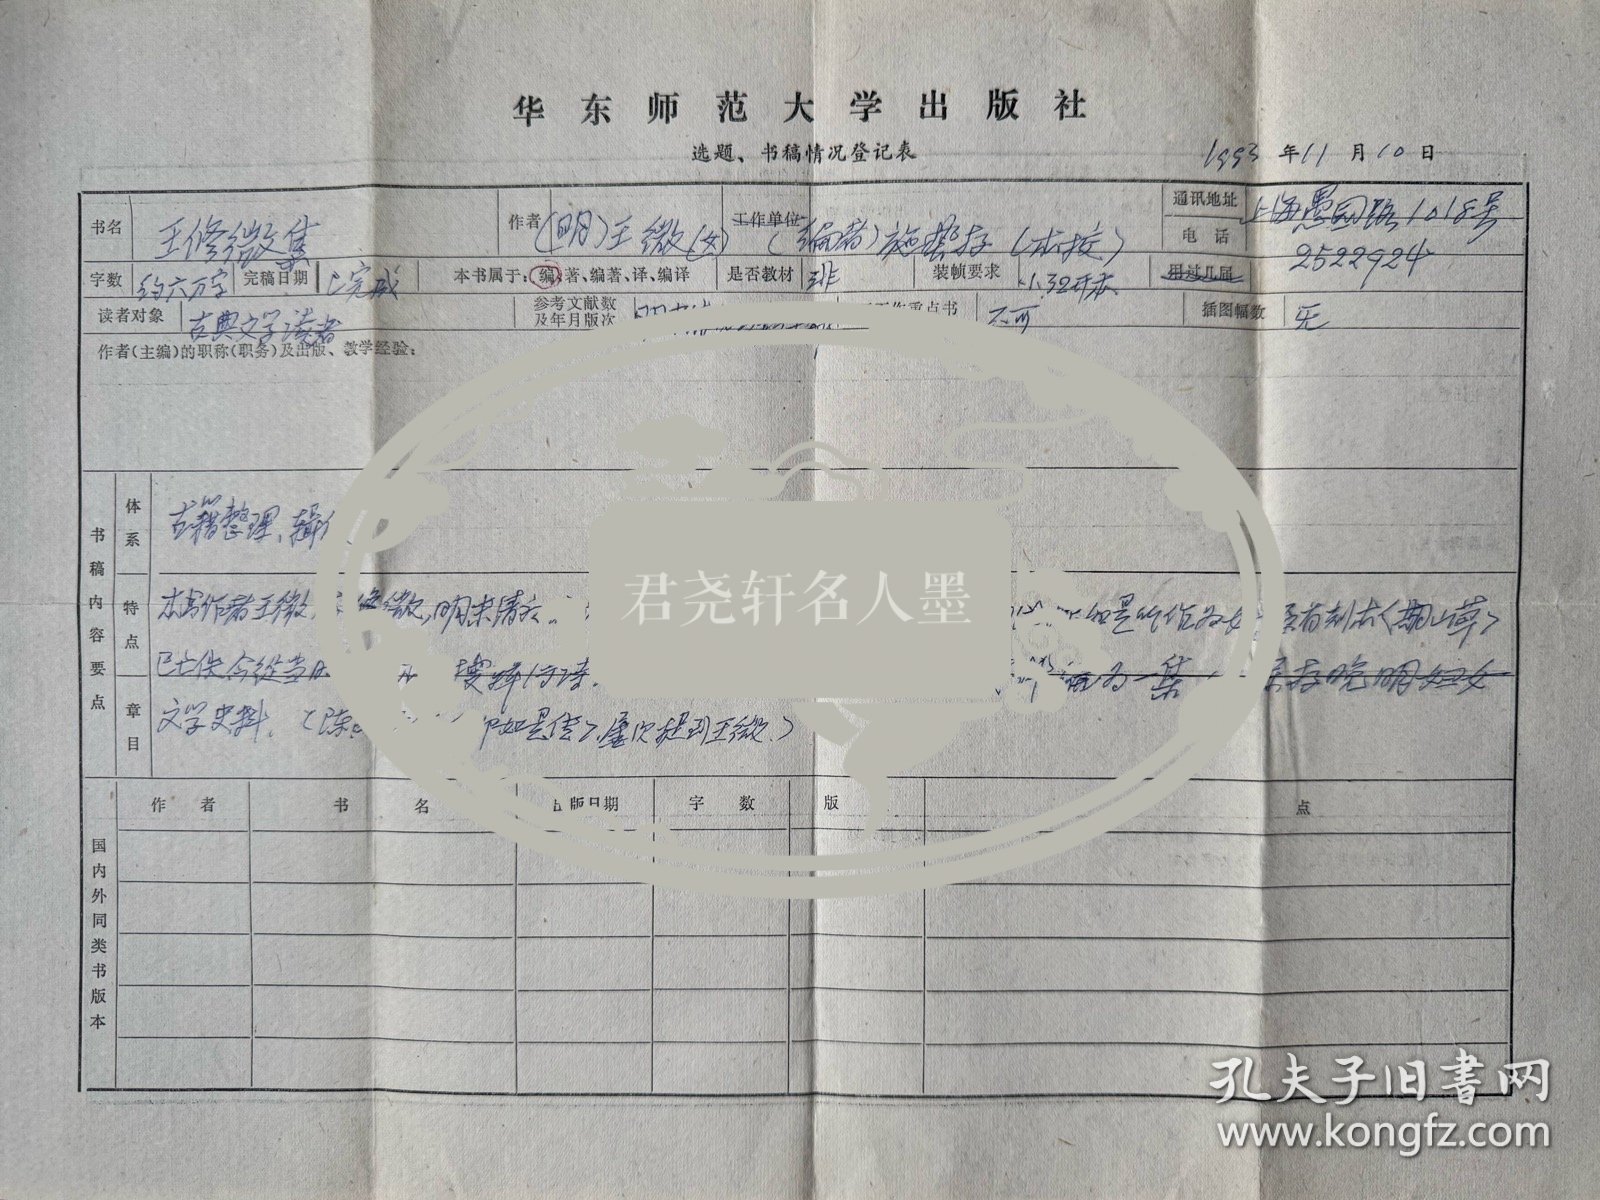 华东师范大学出版社
选题、书稿情况登记表
1993年11月10日
书名 王修微集 作者 (明)王微(女) 工作单位 (编者)施蛰存(本校) 通讯地址 上海愚园路1018号
电话 2522924
字数 约六万字 完稿日期 已完成 本书属于:编、著、编著、译、编译 是否教材 非 装帧要求 小32开本 用过几届
读者对象 古典文学读者 参考文献数及年月版次 重点书 不可 插图幅数 无
作者(主编)的职称(职务)及出版、教学经验:
书稿内容要点
体系 古籍整理、辑
特点
章目
本书作者王微, 修微,明末清 如是 原有刻本《期山草》
已亡佚今从当 为一集 保存晚明妇女
文学史料。(陈 柳如是传》屡次提到王微。)
国内外同类书版本
作者 书名 出版日期 字数 版 点
君尧轩名人墨
孔夫子旧书网
www.kongfz.com